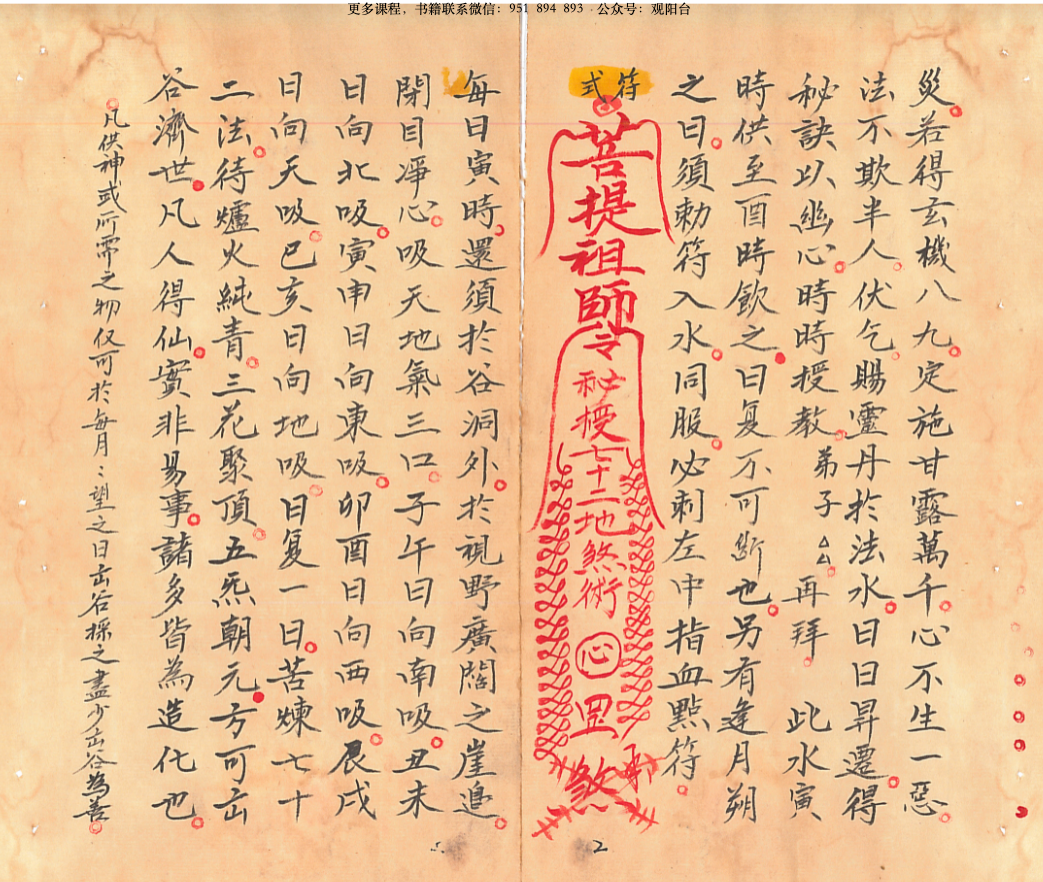 更多课程，书籍联系微信：951 894 893 . 公众号：观阳台
災。若得玄機八九。定施甘露萬千。心不生一惡。
法不欺半人。伏乞。賜靈丹於法水。日日昇遷。得
秘訣以幽心。時時授教。弟子△△。再拜。此水寅
時供至酉時飲之。日复不可断也。另有逢月朔
之日。須勅符入水。同服。必刺左中指血點符。
符式
菩提祖師令秘授七十二地煞術心罡煞
每日寅時。還須於谷洞外。於視野廣闊之崖邉。
閉目凈心。吸天地氣三口。子午日向南吸。丑未
日向北吸。寅申日向東吸。卯酉日向西吸。辰戌
日向天吸。巳亥日向地吸。日复一日。苦煉七十
二法。待爐火純青。三花聚頂。五炁朝元。方可出
谷濟世。凡人得仙。實非易事。諸多皆為造化也。
。凡供神或所需之物仅可於每月：望之日出谷採之盡少出谷為善。
2